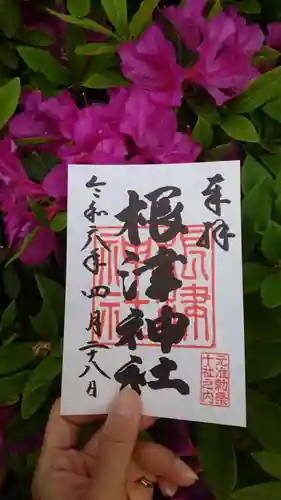 奉拝
根津神社
根津神社
元准勅祭
十社之内
令和六年四月二十八日